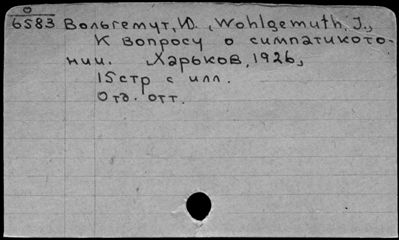 О
6583 Вольгемут, Ю., Wohlgemuth, J.,
К вопросу о симпатикото-
нии. Харьков, 1926,
15 стр с илл.
Отд. отт.